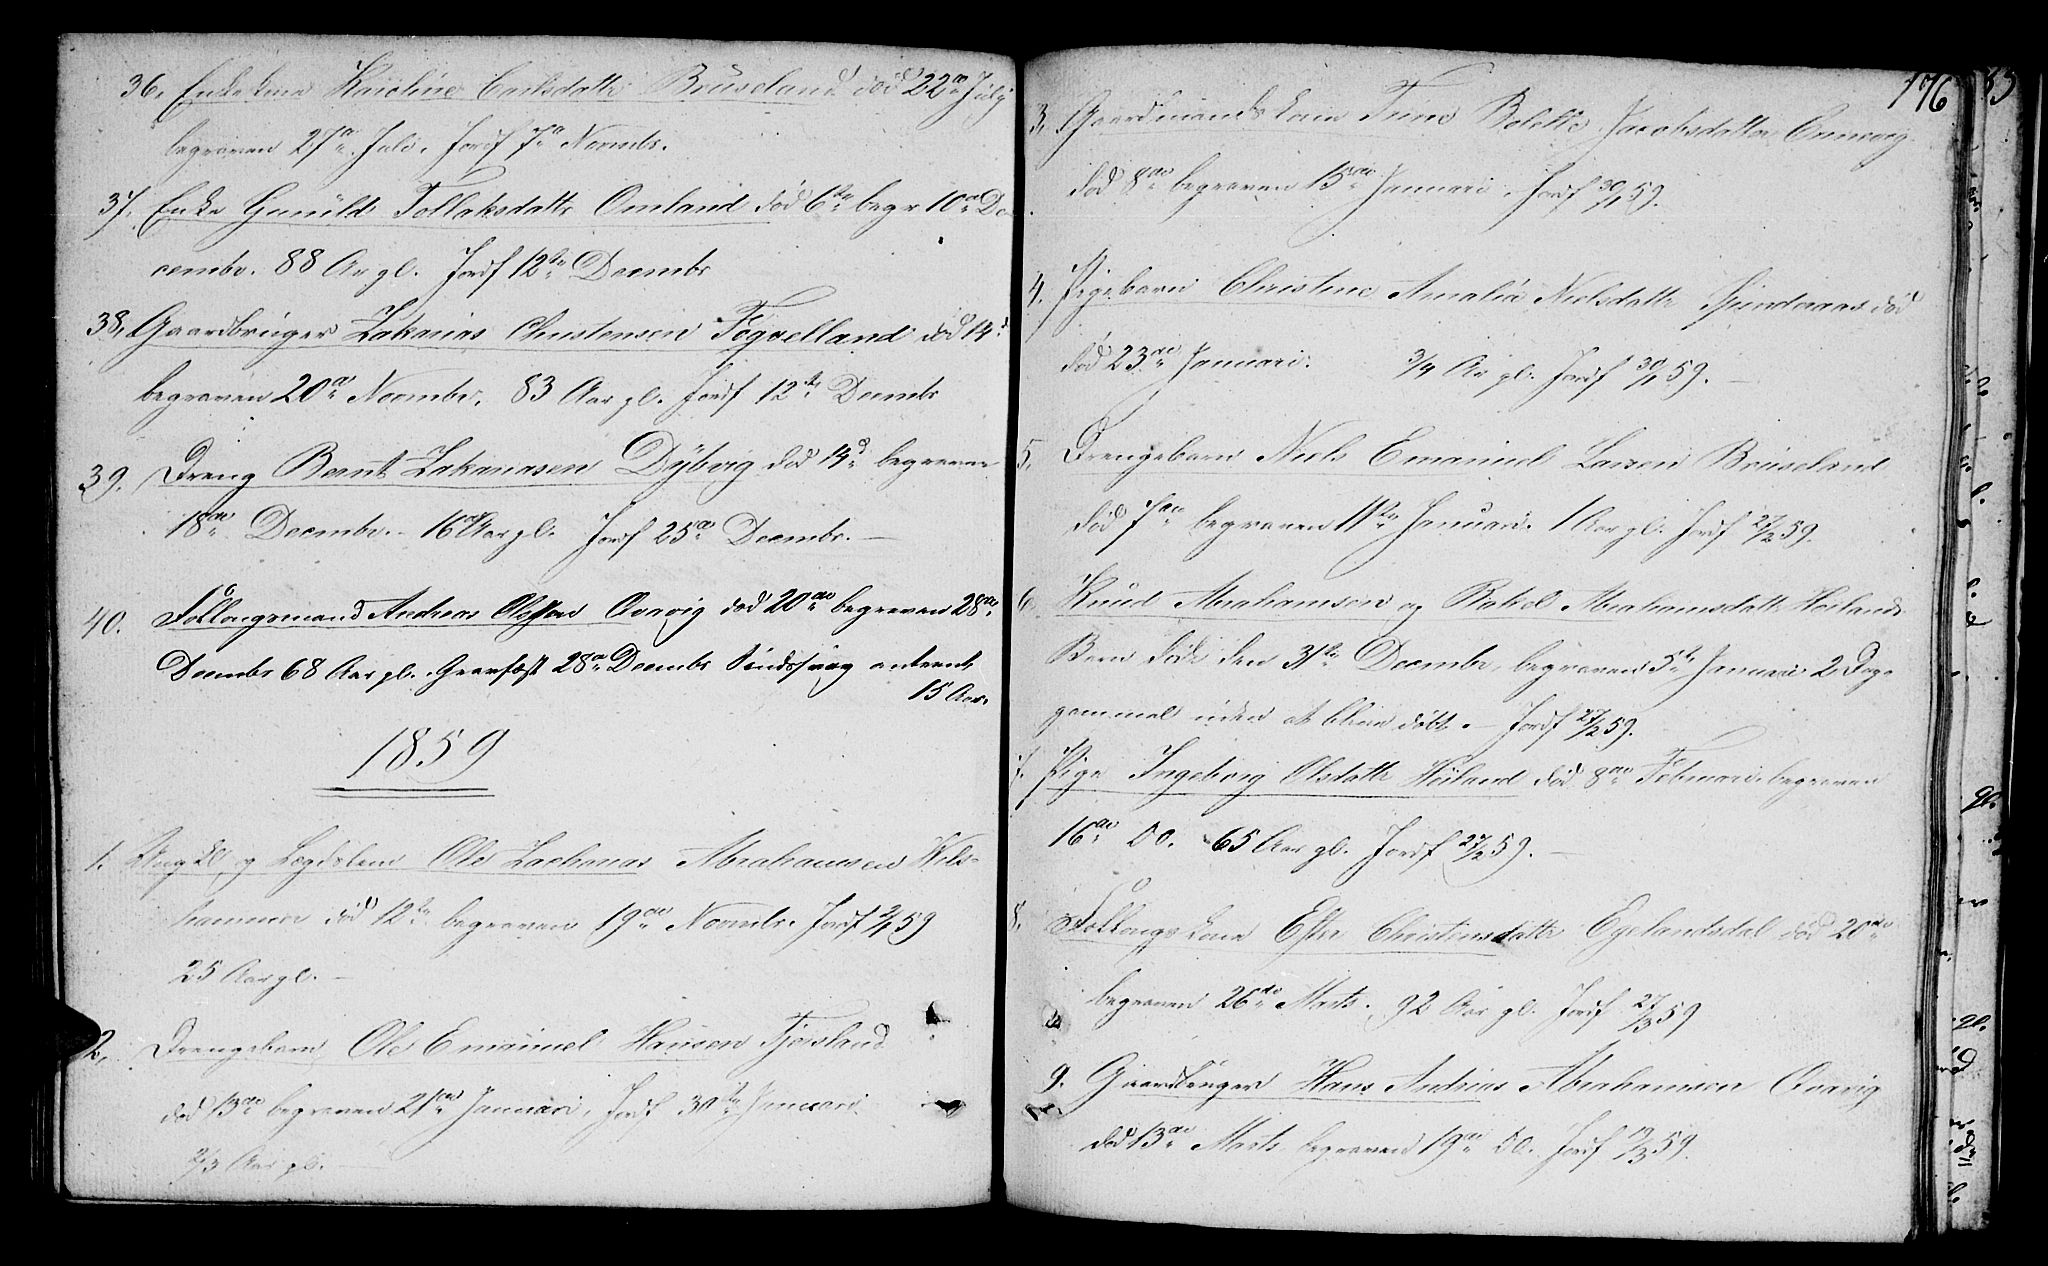 36. Enkekone Karoline Carlsdatter Brüseland död 22de July
begraven 27de Juli. Jordf 7de Novmbr.
37. Enke Gunüld Tollaksdattr Omland död 6te begr 10de De
cembr. 88 Aar gl. Jordf 12te Decmbr
38. Gaardbruger Zakarias Christensen Fogvelland död 14d
begraven 20de Novmbr. 83 Aar gl. Jordf 12te Decmbr
39. Dreng Bernt Zakariasen Dybvig död 14d begraven
18de Decmbr. 16 Aar gl. Jordf 25de Decmbr.
40. Follougsmand Andreas Olsen Aavig död 20de begraven 28de
Decmbr 68 Aar gl. Gravfæst 28de Decmbr
15 Aar.
1859
1. og Lægdslem Ole Zacharias Abrahamsen Hels-
hammer död 12te begraven 19de Novmbr. Jordf 2/1 59
25 Aar gl.
2. Drengebarn Ole Emanuel Hansen Tjersland
död 13de begraven 21de Januari, Jordf 30te Januari
2/3 Aar gl.
176
3. Gaardmands kone Trine Bolette Jacobsdatter
död 8de begraven 15de Januari. Jordf 30/1 59.
4. Pigebarn Christine Amalia Nielsdattr död
död 23de Januari. 3/4 Aar gl. Jordf 30/1 59.
5. Drengebarn Niels Emanuel Larsen Brüseland
död 7de begraven 11te Januari. 1 Aar gl. Jordf 27/2 59.
6. Knud Abrahamsen og Rakel Abrahamsdattr Höiland
Börn döde den 31te Decmbr, begraven 5te Januari 2 Dage
gammel uden at blive döbt. Jordf 27/2 59.
7. Pige Ingeborg Olsdattr Höiland död 8de Februari begraven
16de DO. 65 Aar gl. Jordf 27/2 59.
8. Follougs kone Ester Christensdattr Egelandsdal död 20de
begraven 26de Marts. 92 Aar gl. Jordf 27/3 59
9. Gaardbruger Hans Andreas Abrahamsen Aavig
död 13de Marts begraven 19de DO. Jordf 19/3 59.